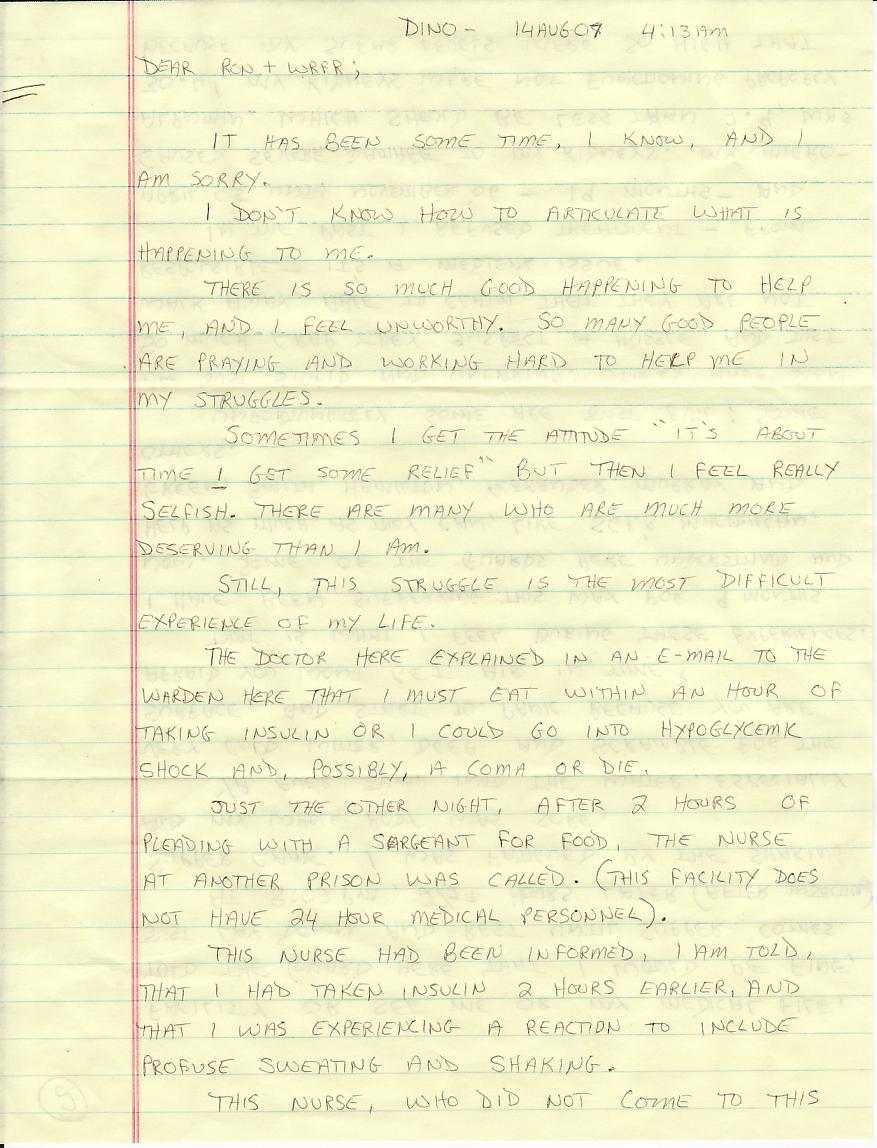 DINO - 14AUG07 4:13AM
DEAR RON + WRFR;
IT HAS BEEN SOME TIME, I KNOW, AND I
AM SORRY.
I DON'T KNOW HOW TO ARTICULATE WHAT IS
HAPPENING TO ME.
THERE IS SO MUCH GOOD HAPPENING TO HELP
ME, AND I FEEL UNWORTHY. SO MANY GOOD PEOPLE
ARE PRAYING AND WORKING HARD TO HELP ME IN
MY STRUGGLES.
SOMETIMES I GET THE ATTITUDE "IT'S ABOUT
TIME I GET SOME RELIEF" BUT THEN I FEEL REALLY
SELFISH. THERE ARE MANY WHO ARE MUCH MORE
DESERVING THAN I AM.
STILL, THIS STRUGGLE IS THE MOST DIFFICULT
EXPERIENCE OF MY LIFE.
THE DOCTOR HERE EXPLAINED IN AN E-MAIL TO THE
WARDEN HERE THAT I MUST EAT WITHIN AN HOUR OF
TAKING INSULIN OR I COULD GO INTO HYPOGLYCEMIC
SHOCK AND, POSSIBLY, A COMA OR DIE.
JUST THE OTHER NIGHT, AFTER 2 HOURS OF
PLEADING WITH A SARGEANT FOR FOOD, THE NURSE
AT ANOTHER PRISON WAS CALLED. (THIS FACILITY DOES
NOT HAVE 24 HOUR MEDICAL PERSONNEL).
THIS NURSE HAD BEEN INFORMED, I AM TOLD,
THAT I HAD TAKEN INSULIN 2 HOURS EARLIER, AND
THAT I WAS EXPERIENCING A REACTION TO INCLUDE
PROFUSE SWEATING AND SHAKING.
THIS NURSE, WHO DID NOT COME TO THIS